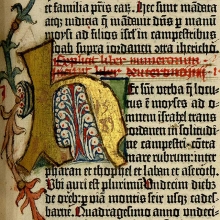 et familia p̄ris eaꝝ. Hec sunt mādata
atqꝫ iudicia q̄ mandavit dūs p manū
moysi ad filios isrl in campestribus
moab supra iordanem ōtra ihericho
Explicit liber numerorum
liber deuteronomii
Hec sūt verba q̄ locu-
tus ē moyses ad o-
mnem israhel trans
iordanem ī solitudi-
ne campestri: cōtra
mare rubrum: inter
pharan et thophel et laban et aseroth:
Ubi auri est plurimū. Undecim diebꝫ
de oreb: p viam montis seir usqꝫ cades-
barne. Quadragesimo anno undeci-